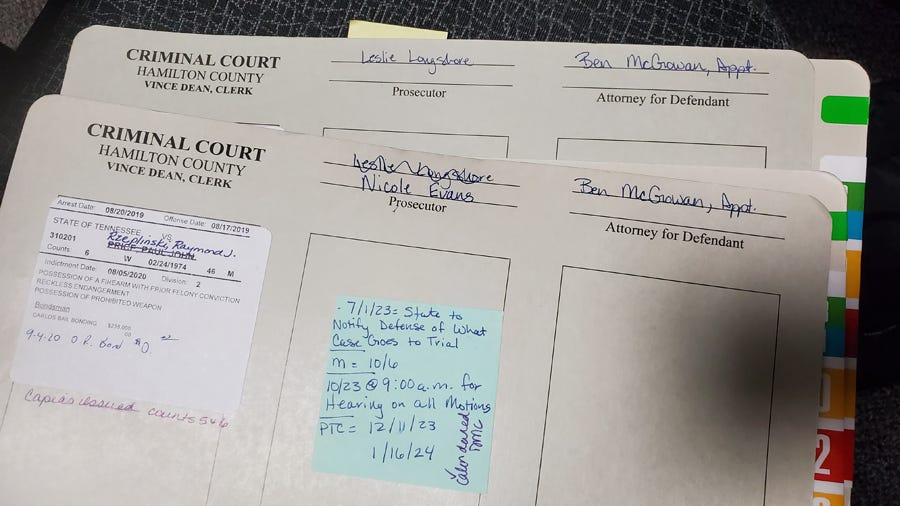 CRIMINAL COURT
HAMILTON COUNTY
VINCE DEAN, CLERK
Leslie Longshore
Prosecutor
Ben McGowan, Appt.
Attorney for Defendant
CRIMINAL COURT
HAMILTON COUNTY
VINCE DEAN, CLERK
Leslie Longshore
Nicole Evans
Prosecutor
Ben McGowan, Appt.
Attorney for Defendant
Arrest Date: 08/20/2019 Offense Date: 08/17/2019
STATE OF TENNESSEE VS
Rzeplinski, Raymond J.
PRICE PAUL JOHN
310201 W 02/24/1974 46 M
Counts: 6 Division: 2
Indictment Date: 08/05/2020
POSSESSION OF A FIREARM WITH PRIOR FELONY CONVICTION
RECKLESS ENDANGERMENT
POSSESSION OF PROHIBITED WEAPON
Bondsman
CARLOS BAIL BONDING $255,000
00
9-4-20 O.R. Bond $0.
Capias issued counts 5+6
- 7/1/23 = State to
Notify Defense of What
Case Goes to Trial
m = 10/6
10/23 @ 9:00 a.m. for
Hearing on all Motions
PTC = 12/11/23
1/16/24
calendared
DMC
2